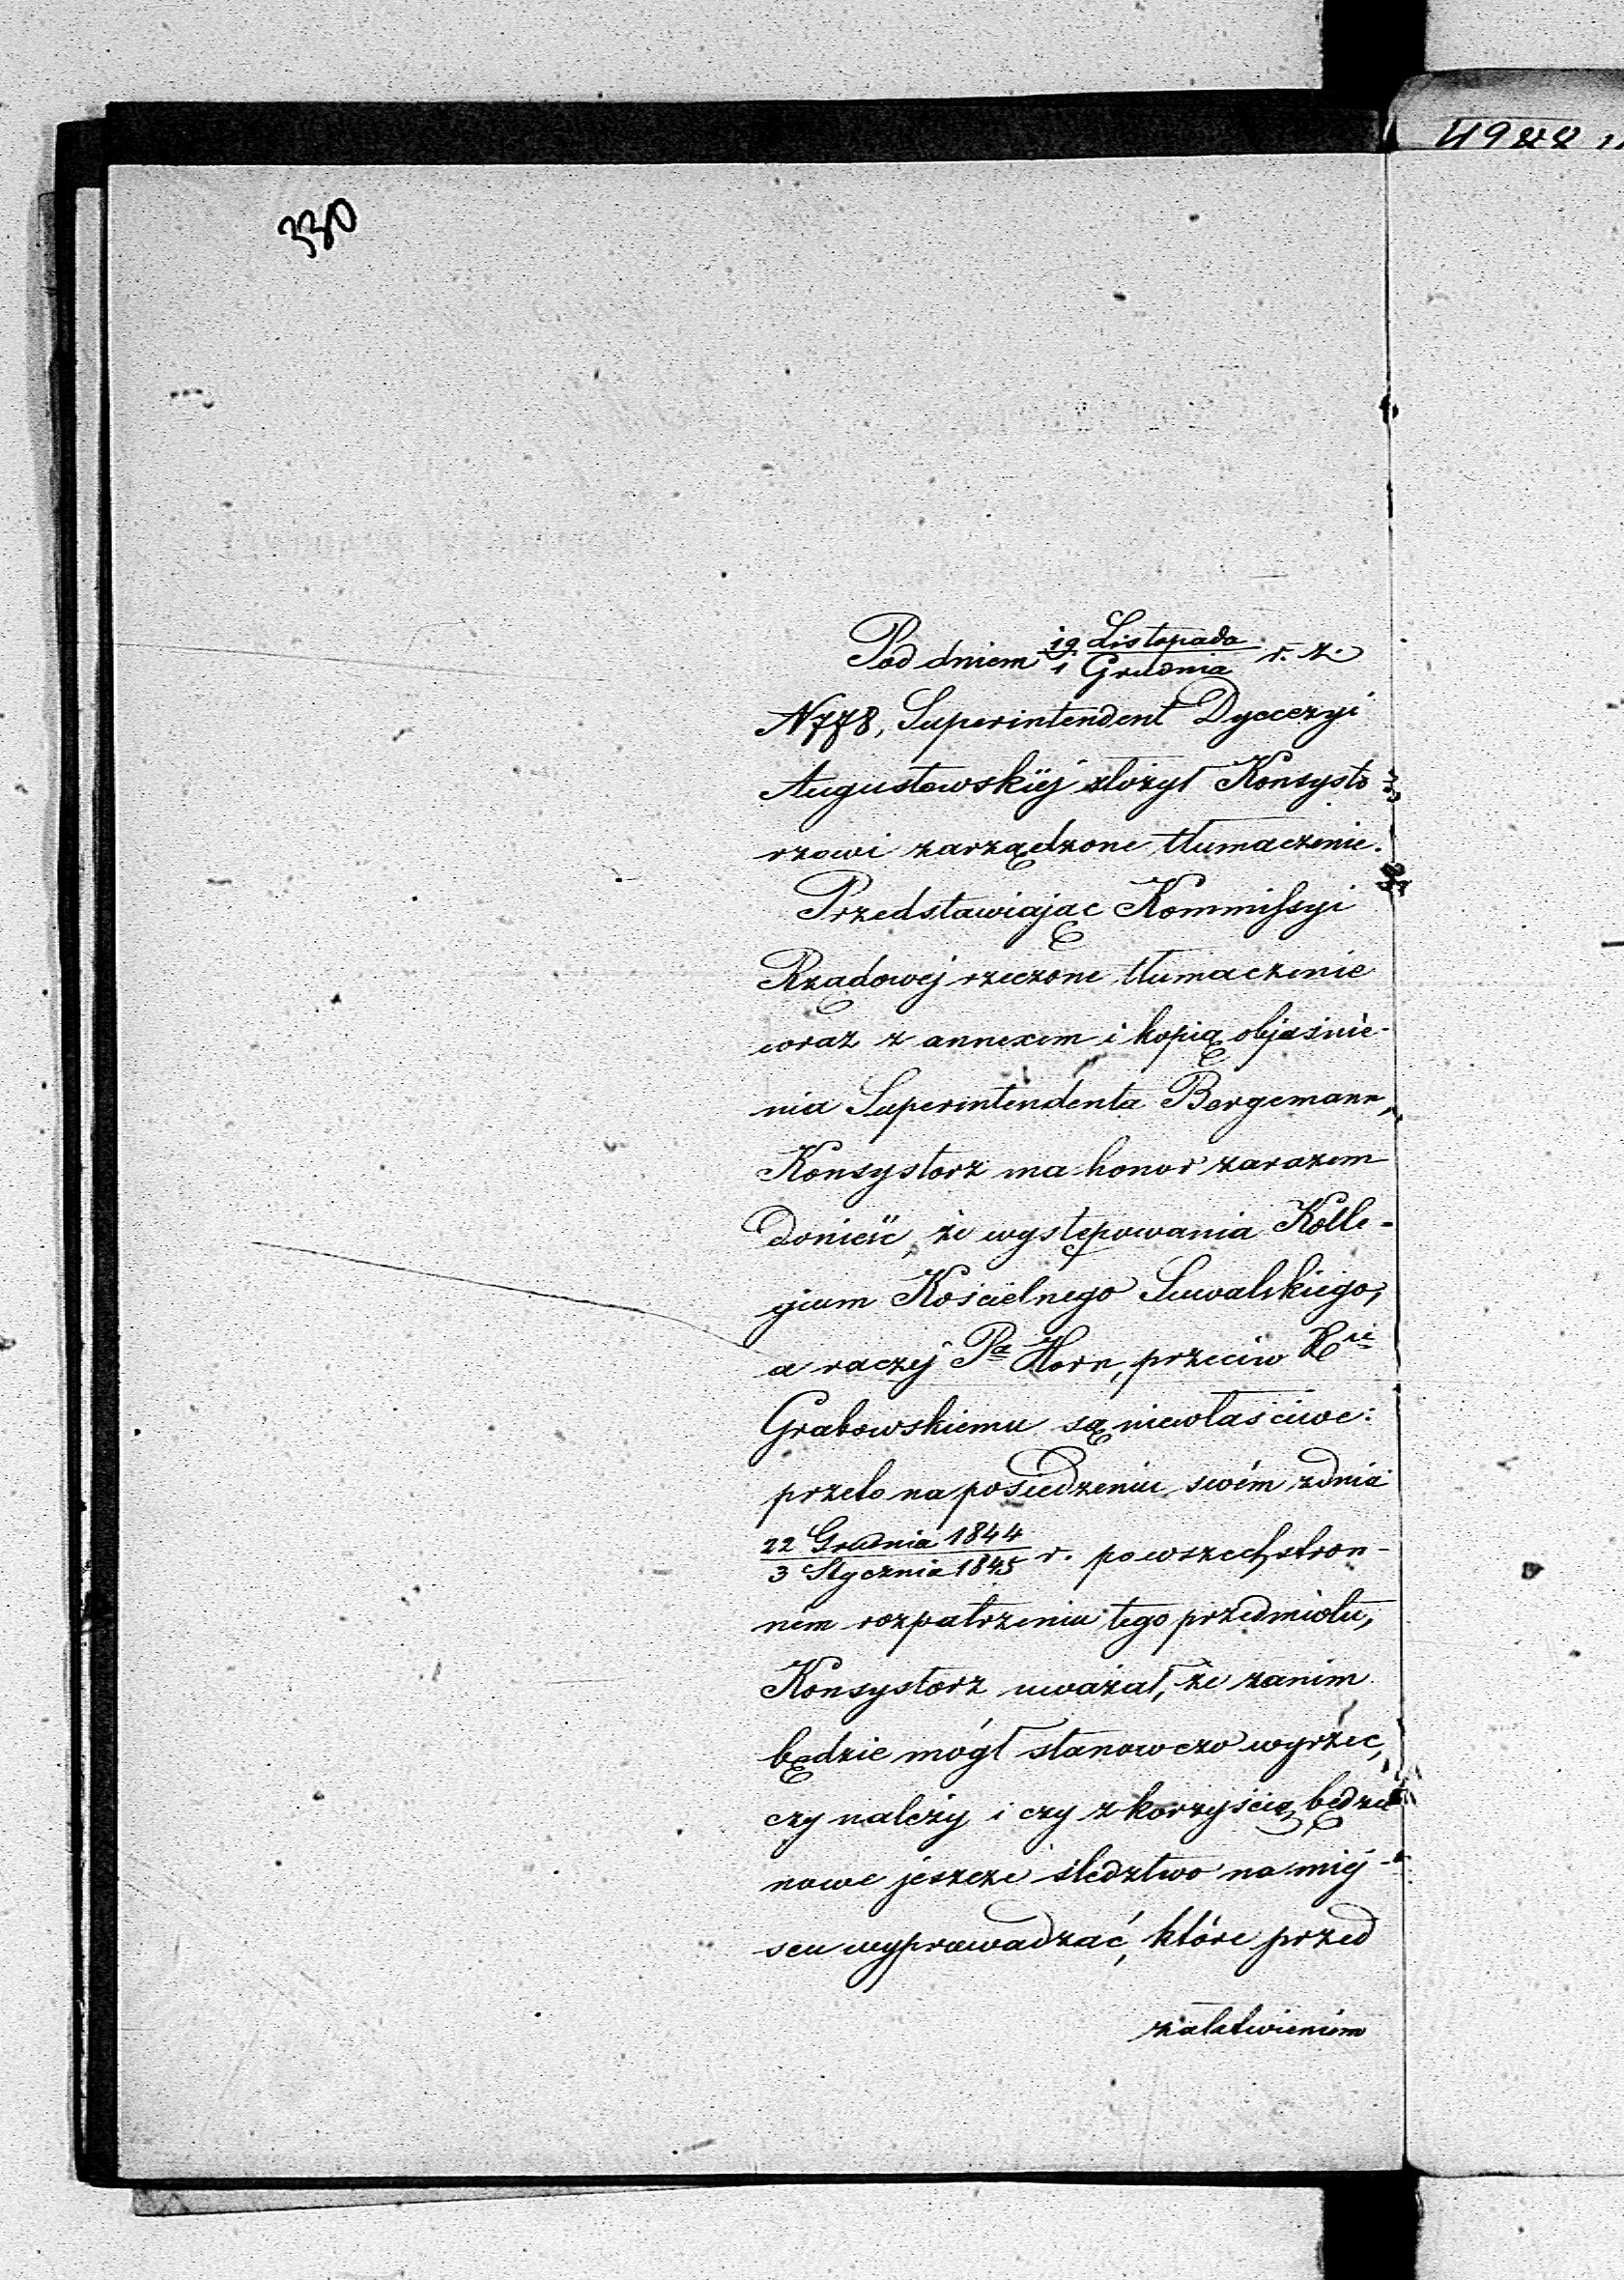 330
Pod dniem 19 Listopada / 1 Grudnia r. z.
N 778, Superintendent Dyecezyi
Augustowskiéj złożył Konsysto
rzowi zarządzone tłumaczenie.
Przedstawiając Kommissyi
Rządowéj rzeczone tłumaczenie
wraz z annexem i kopią objaśnie-
nia Superintendenta Bergemann,
Konsystorz ma honor zarazem
donieść, że występowania Kolle-
gium Kościelnego Suwalskiego,
a raczéj Pa Horn, przeciw
Grabowskiemu są niewłaściwe:
przeto na posiedzeniu swém z dnia
22 Grudnia 1844 / 3 Stycznia 1845 r. po wszechstron-
ném rozpatrzeniu tego przedmiotu,
Konsystorz uważał, że zanim
będzie mógł stanowczo wyrzec,
czy należy i czy z korzyścią będzie
nowe jeszcze śledztwo na miéj-
scu wyprowadzać, które przed
załatwieniem